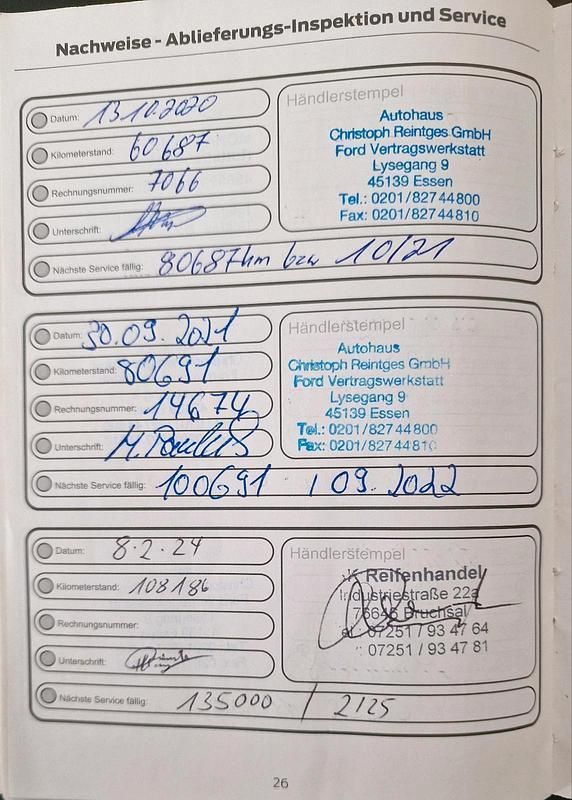 Nachweise - Ablieferungs-Inspektion und Service
Datum: 13.10.2020
Kilometerstand: 60687
Rechnungsnummer: 7066
Unterschrift:
Nächste Service fällig: 80687km bzw 10/21
Händlerstempel
Autohaus
Christoph Reintges GmbH
Ford Vertragswerkstatt
Lysegang 9
45139 Essen
Tel.: 0201/8274 4800
Fax: 0201/8274 4810
Datum: 30.09.2021
Kilometerstand: 80691
Rechnungsnummer: 14674
Unterschrift: M.
Nächste Service fällig: 100691 / 09.2022
Händlerstempel
Autohaus
Christoph Reintges GmbH
Ford Vertragswerkstatt
Lysegang 9
45139 Essen
Tel.: 0201/8274 4800
Fax: 0201/8274 481
Datum: 8.2.24
Kilometerstand: 108186
Rechnungsnummer:
Unterschrift:
Nächste Service fällig: 135000 / 2/25
Händlerstempel
Reifenhandel
Industriestraße 22a
76646 Bruchsal
07251 / 93 47 64
07251 / 93 47 81
26